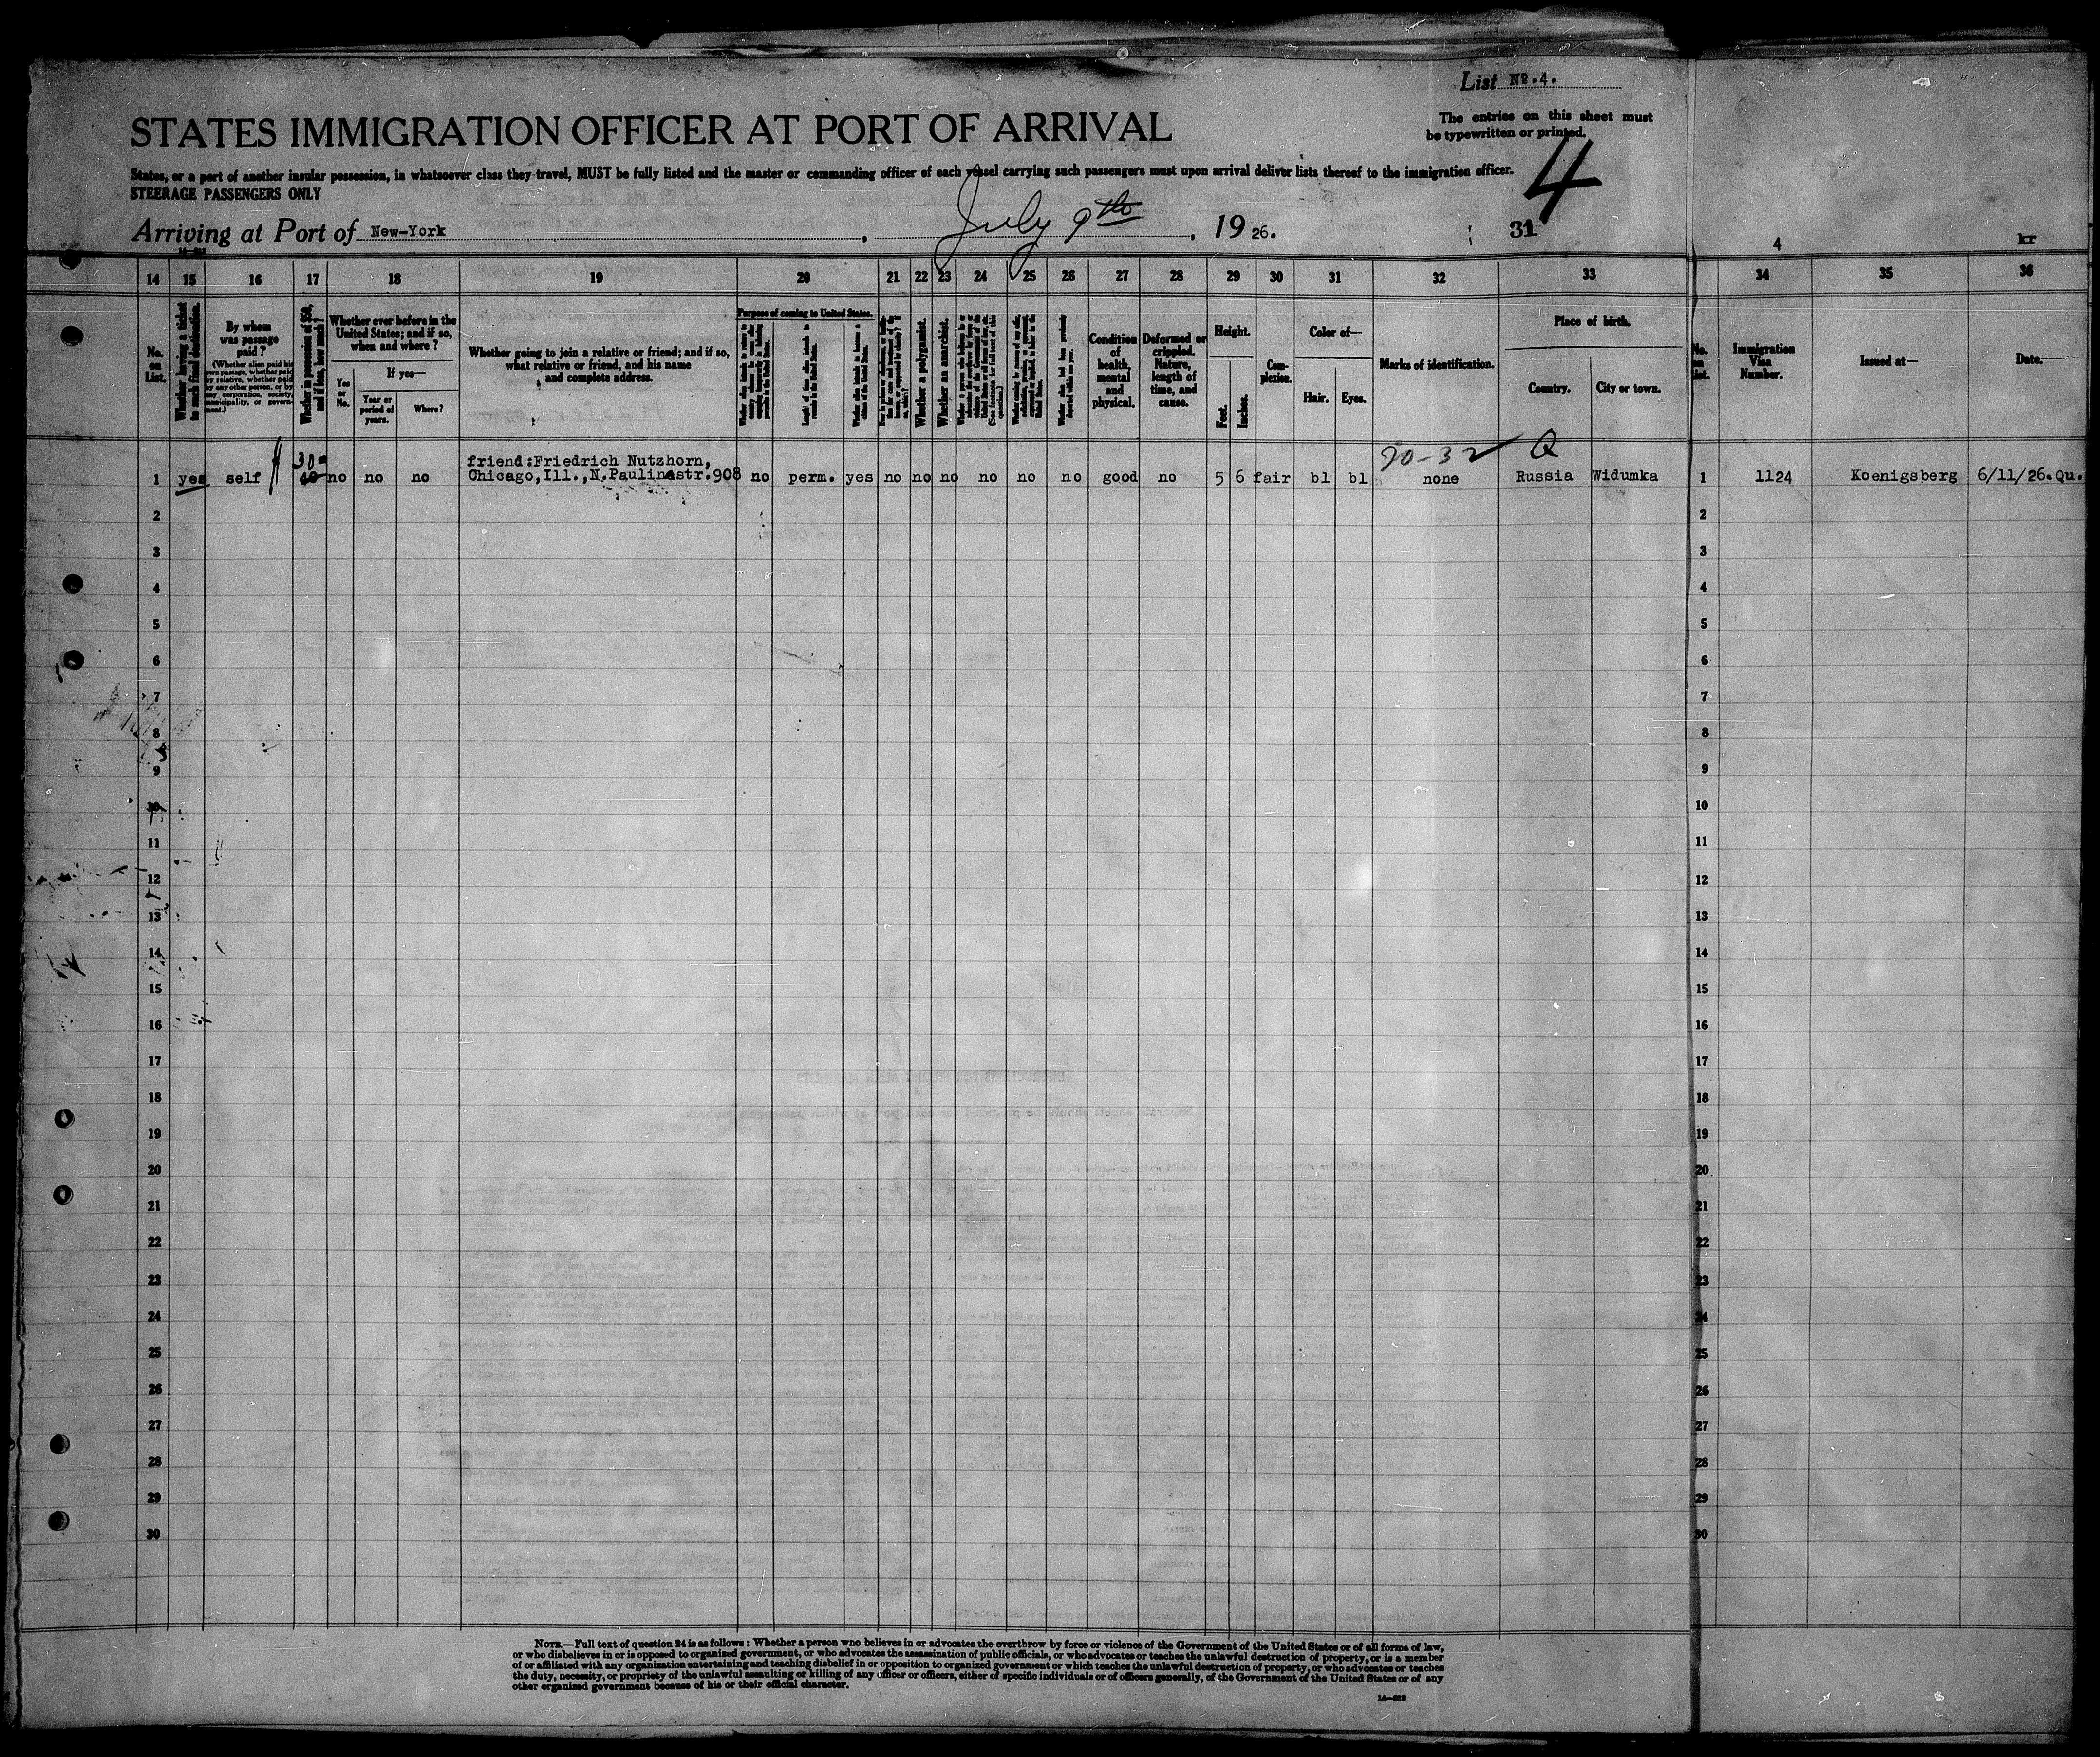 List No.4.
STATES IMMIGRATION OFFICER AT PORT OF ARRIVAL
The entries on this sheet must
be typewritten or printed.
4
States, or a port of another insular possession, in whatsoever class they travel, MUST be fully listed and the master or commanding officer of each vessel carrying such passengers must upon arrival deliver lists thereof to the immigration officer.
STEERAGE PASSENGERS ONLY
Arriving at Port of New-York, July 9th, 1926.
31
4
kr
14 15 16 17 18 19 20 21 22 23 24 25 26 27 28 29 30 31 32 33 34 35 36
No. on List.
Whether having a ticket to such final destination.
By whom was passage paid?
(Whether alien paid his own passage, whether paid by relative, whether paid by any other person, or by any corporation, society, municipality, or government.)
Whether in possession of $50, and if less, how much?
Whether ever before in the United States; and if so, when and where?
Yes or No.
If yes—
Year or period of years.
Where?
Whether going to join a relative or friend; and if so, what relative or friend, and his name and complete address.
Purpose of coming to United States.
Whether a polygamist.
Whether an anarchist.
Condition of health, mental and physical.
Deformed or crippled. Nature, length of time, and cause.
Height.
Feet.
Inches.
Complexion.
Color of—
Hair.
Eyes.
Marks of identification.
Place of birth.
Country.
City or town.
No. on List.
Immigration Visa Number.
Issued at—
Date.
friend:Friedrich Nutzhorn,
1 yes self 30 no no no Chicago,Ill.,N.Paulinastr.908 no perm. yes no no no no no no good no 5 6 fair bl bl none Russia Widumka 1 1124 Koenigsberg 6/11/26.Qu.
90-32 Q
2 2
3 3
4 4
5 5
6 6
7 7
8 8
9 9
10 10
11 11
12 12
13 13
14 14
15 15
16 16
17 17
18 18
19 19
20 20
21 21
22 22
23 23
24 24
25 25
26 26
27 27
28 28
29 29
30 30
NOTE.—Full text of question 24 is as follows: Whether a person who believes in or advocates the overthrow by force or violence of the Government of the United States or of all forms of law,
or who disbelieves in or is opposed to organized government, or who advocates the assassination of public officials, or who advocates or teaches the unlawful destruction of property, or is a member
of or affiliated with any organization entertaining and teaching disbelief in or opposition to organized government or which teaches the unlawful destruction of property, or who advocates or teaches
the duty, necessity, or propriety of the unlawful assaulting or killing of any officer or officers, either of specific individuals or of officers generally, of the Government of the United States or of any
other organized government because of his or their official character.